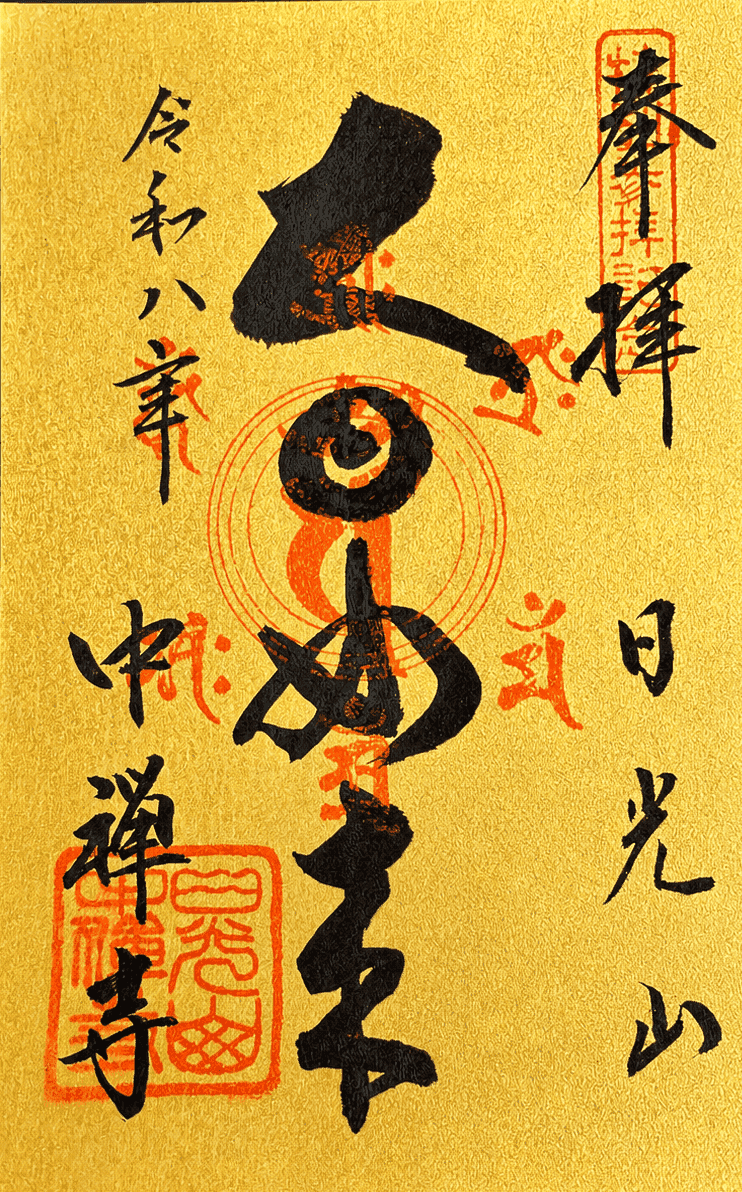 奉拝
日光山
大日如来
令和八年
中禅寺
日光山
中禅寺